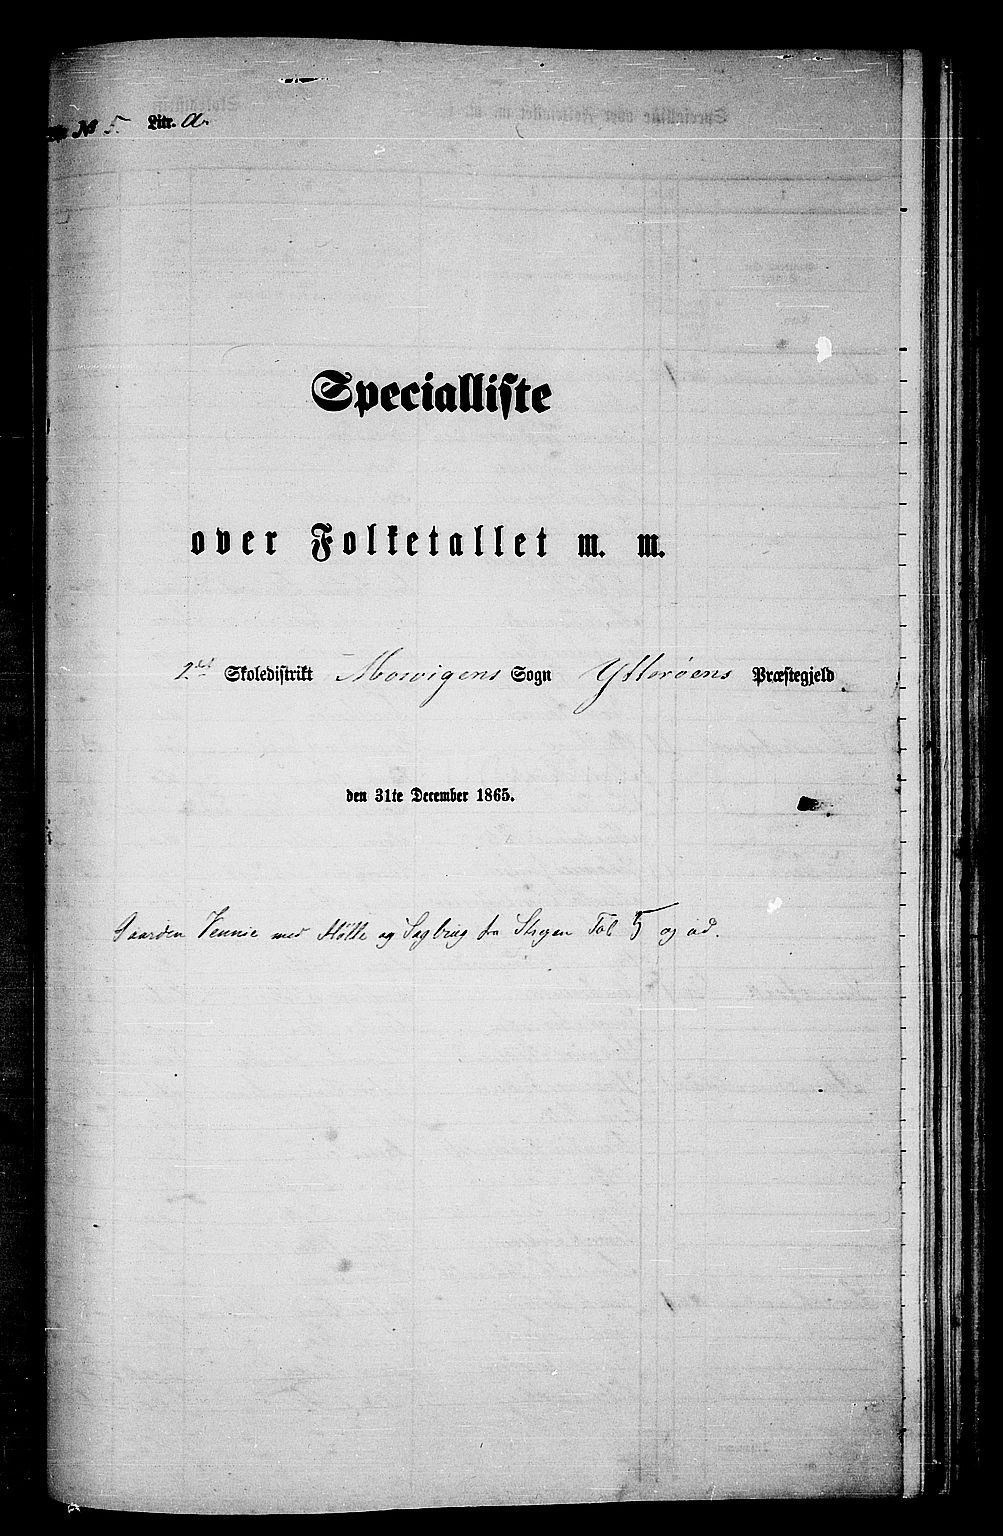 № 5. Litr. a.
Specialliste
over Folketallet m. m.
2det Skoledistrikt Mosvigens Sogn Ytterøens Præstegjeld
den 31te December 1865.
Gaarden Vennie med Mølle og Sagbrug fra Skogen Tab 5 og ad.